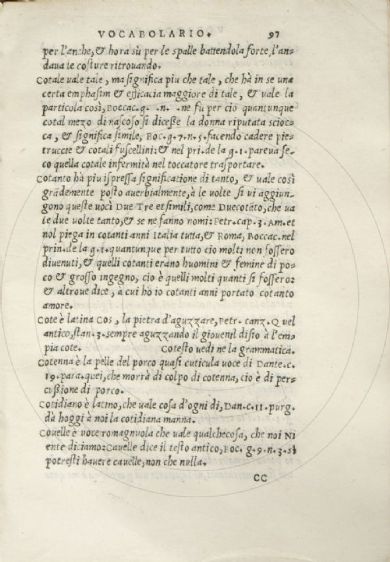 VOCABOLARIO. 97
per l'anche, & hora sù per le spalle battendola forte, l'an=
daua le costure ritrouando.
Cotale vale tale, ma significa piu che tale, che hà in se una
certa emphasim & efficacia maggiore di tale, & vale la
particola così, Boccac. g. .n. .ne fu per cio quantunque
cotal mezo di nascoso si dicesse la donna riputata scioc=
ca, & significa simile, Boc. g. 7. n. 5. facendo cadere pie
truccie & cotali fuscellini: & nel pri. de la g. 1. pareua se=
co quella cotale infermità nel toccatore trasportare.
Cotanto hà piu ispressa significatione di tanto, & vale così
grãdemente posto auerbialmente, à le volte si vi aggiun=
gono queste uoci Due Tre et simili, come Duecotãto, che ua
le due volte tanto, & se ne fanno nomi: Petr. cap. 3. Am. et
nol piega in cotanti anni Italia tutta, & Roma, Boccac. nel
prin. de la g. 1. quantunque per tutto cio molti non fossero
diuenuti, & quelli cotanti erano huomini & femine di po=
co & grosso ingegno, cio è quelli molti quanti si fossero:
& altroue dice, a cui hò io cotanti anni portato cotanto
amore.
Cote è latina Cos, la pietra d'aguzzare, Petr. canz. Q vel
antico, stan. 3. sempre aguzzando il giouenil disio à l'em=
pia cote. Cotesto vedi ne la grammatica.
Cotenna è la pelle del porco quasi cuticula uoce di Dante. c.
19. para. quei, che morrà di colpo di cotenna, cio è di per=
cussione di porco.
Cotidiano è latino, che uale cosa d'ogni dì, Dan. c. 11. purg.
dà hoggi à noi la cotidiana manna.
Couelle è uoce romagnuola che uale qualchecosa, che noi Ni
ente diciamo: Cauelle dice il testo antico, Boc. g. 9. n. 3. sì
potresti hauere cauelle, non che nulla.
CC